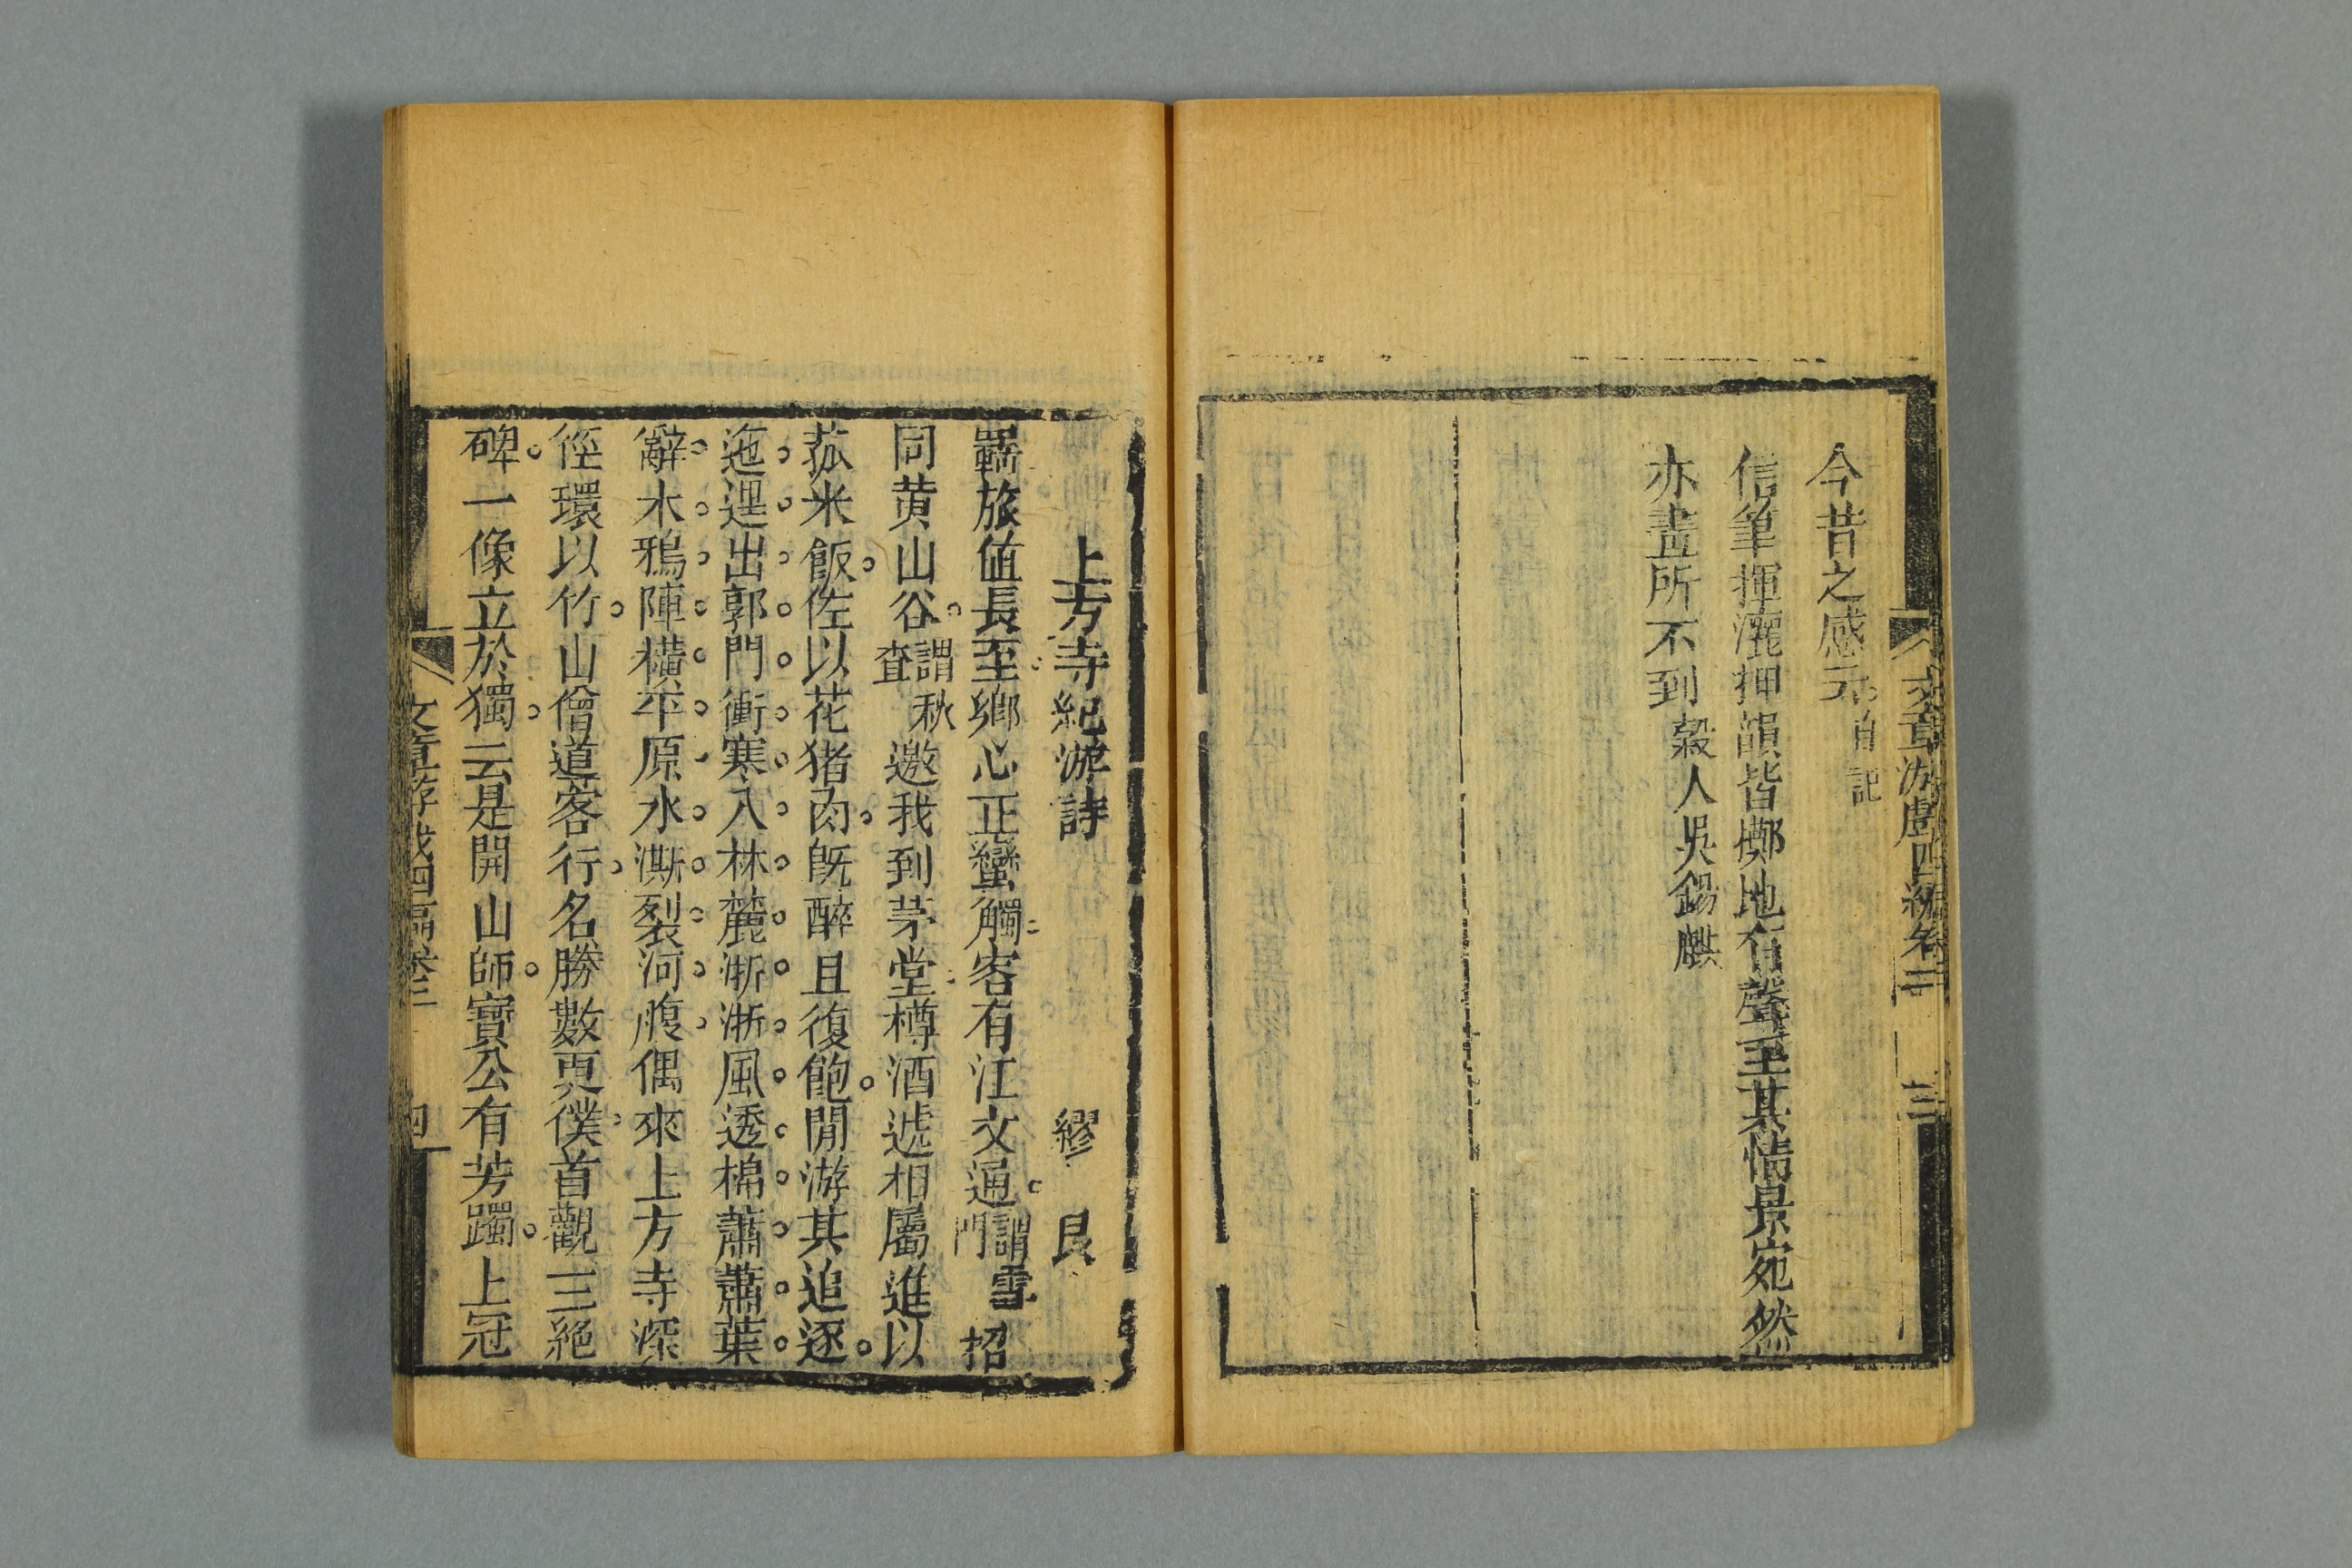 文章游戲四編卷三 三
今昔之感元。自記
信筆揮灑押韻皆擲地有聲至其情景宛然
亦畫所不到 穀人吳錫麒
上方寺紀游詩 繆艮
羈旅值長至。鄉心正蠻觸。客有江文通。謂雪門招
同黃山谷。謂秋查邀我到茅堂。樽酒遞相屬進以
菰米飯。佐以花猪肉。既醉且復飽。閒游其追逐。
迤邐出郭門衝寒入林麓。淅淅風透棉蕭蕭葉
辭木。鴉陣橫平原水澌裂河腹。偶來上方寺深
徑環以竹。山僧道客行。名勝數更僕。首觀三絕
碑。一像立於獨。云是開山師。寶公有芳躅。上冠
文章游戲四編卷三 四